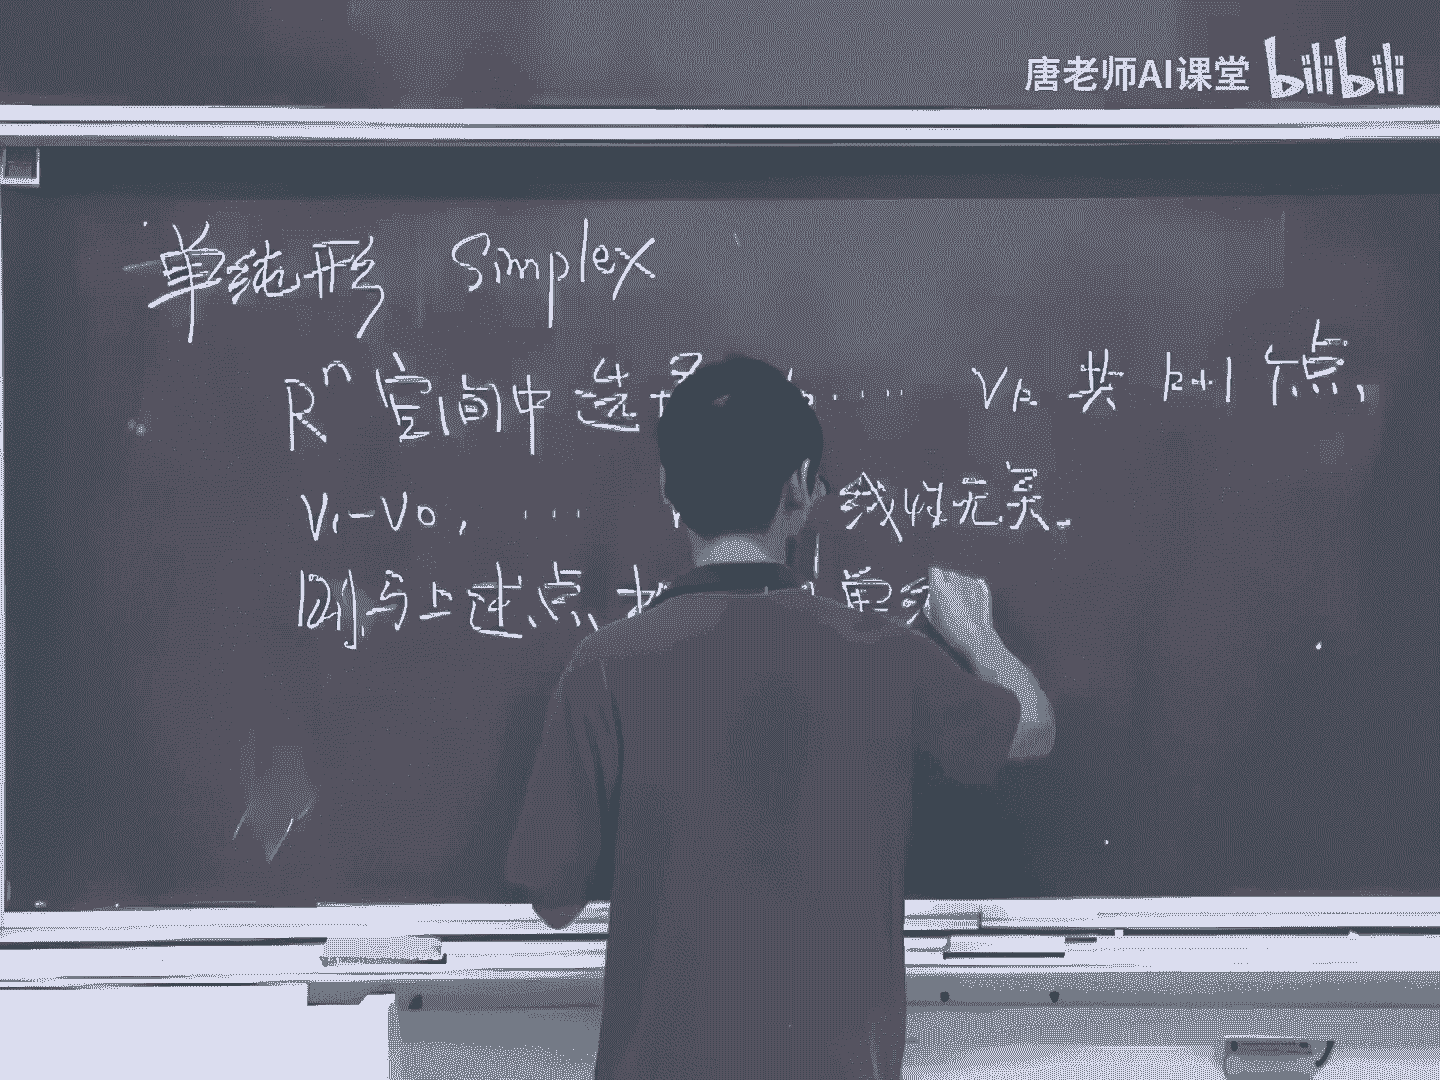 唐老师AI课堂 bilibili
单纯形 Simplex
R^n 空间中选 ···· Vk 共 k+1 个点,
V1-V0, ··· 线性无关.
则与上述点 单